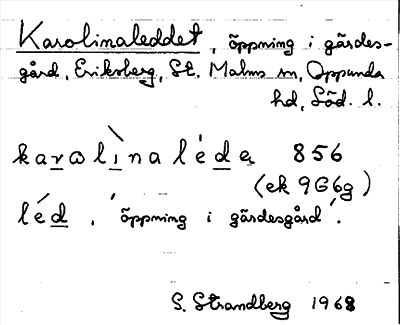 Karolinaleddet, öppning i gärdes-
gård, Eriksberg, St. Malms sn, Oppunda
hd, Söd. l.
karωlìnaléde 856
(ek 9G6g)
léd, 'öppning i gärdesgård'.
S. Strandberg 1968